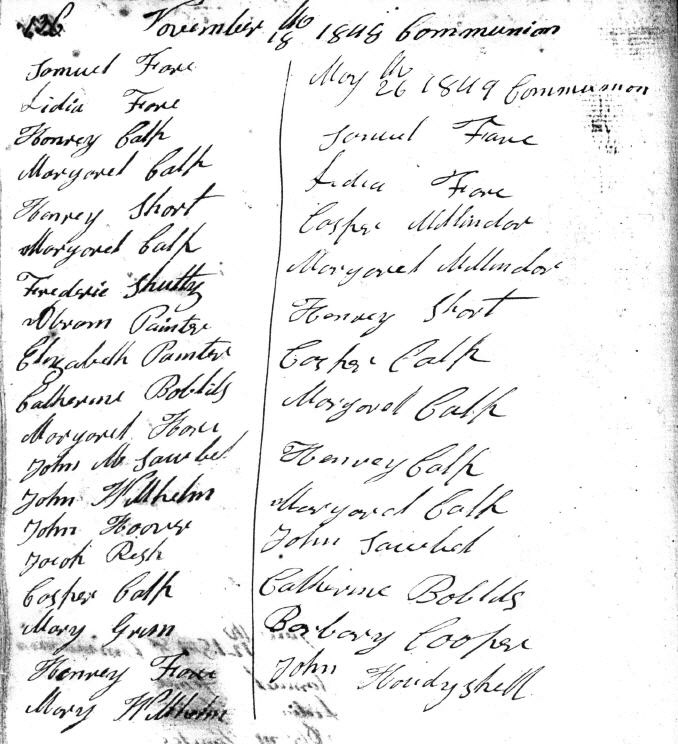 126 November 18th 1848 Communion
Samuel Fare
Lidia Fare
Henrey Calp
Margaret Calp
Henrey Short
Margaret Calp
Frederic Shutty
Abram Painter
Elizabeth Painter
Catherine Boblits
Margaret Hare
John M Sawbel
John Wilhelm
John Hoover
Jacob Resh
Casper Calp
Mary Grim
Henrey Fare
Mary Wilhelm
May 26th 1849 Communion
Samuel Fare
Lidia Fare
Casper Millindor
Margaret Millindor
Henrey Short
Casper Calp
Margaret Calp
Henrey Calp
Margaret Calp
John Sawbel
Catherine Boblits
Barbary Cooper
John Houdyshell